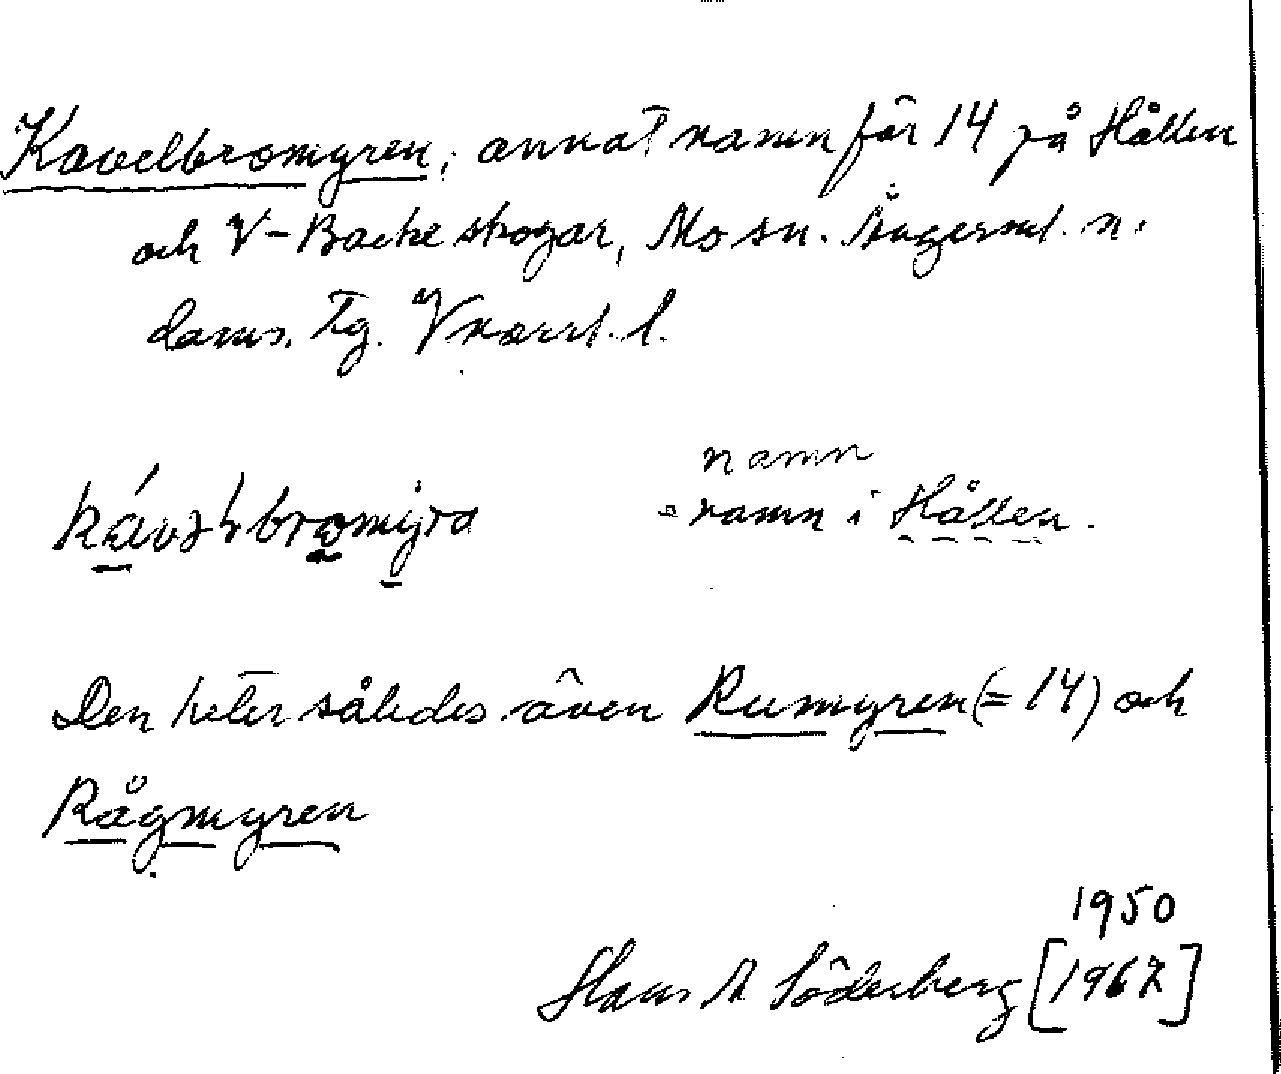 Kavelbromyren, annat namn för 14 på Hållen
och V-Backe skogar, Mo sn. Ångerml. n.
doms. Tg. Vnorrl. l.
namn
- namn i Hållen.
Den heter således även Rumyren (= 14) och
Rågmyren
1950
Hans A Söderberg [1967]